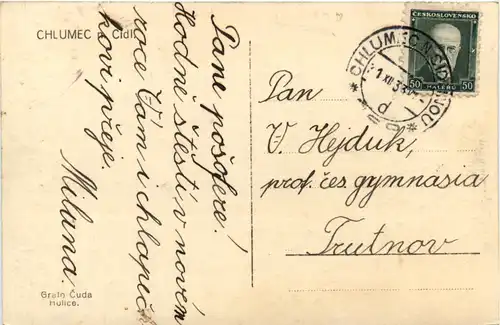 CHLUMEC n. Cidl.
Pane pošťere!
Hodně štěstí v novém
roce Vám i chlapeč-
kovi přeje
Miluna.
Grafo Čuda
Holice.
ČESKOSLOVENSKO
50 HALÉŘŮ 50
CHLUMEC N. CIDLINOU
1 XII 38
d
Pan
V. Hejduk,
prof. čes. gymnasia
Trutnov